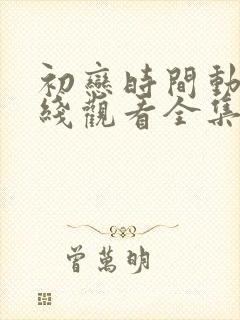 初戀時間動
綫觀看全集
曾萬明